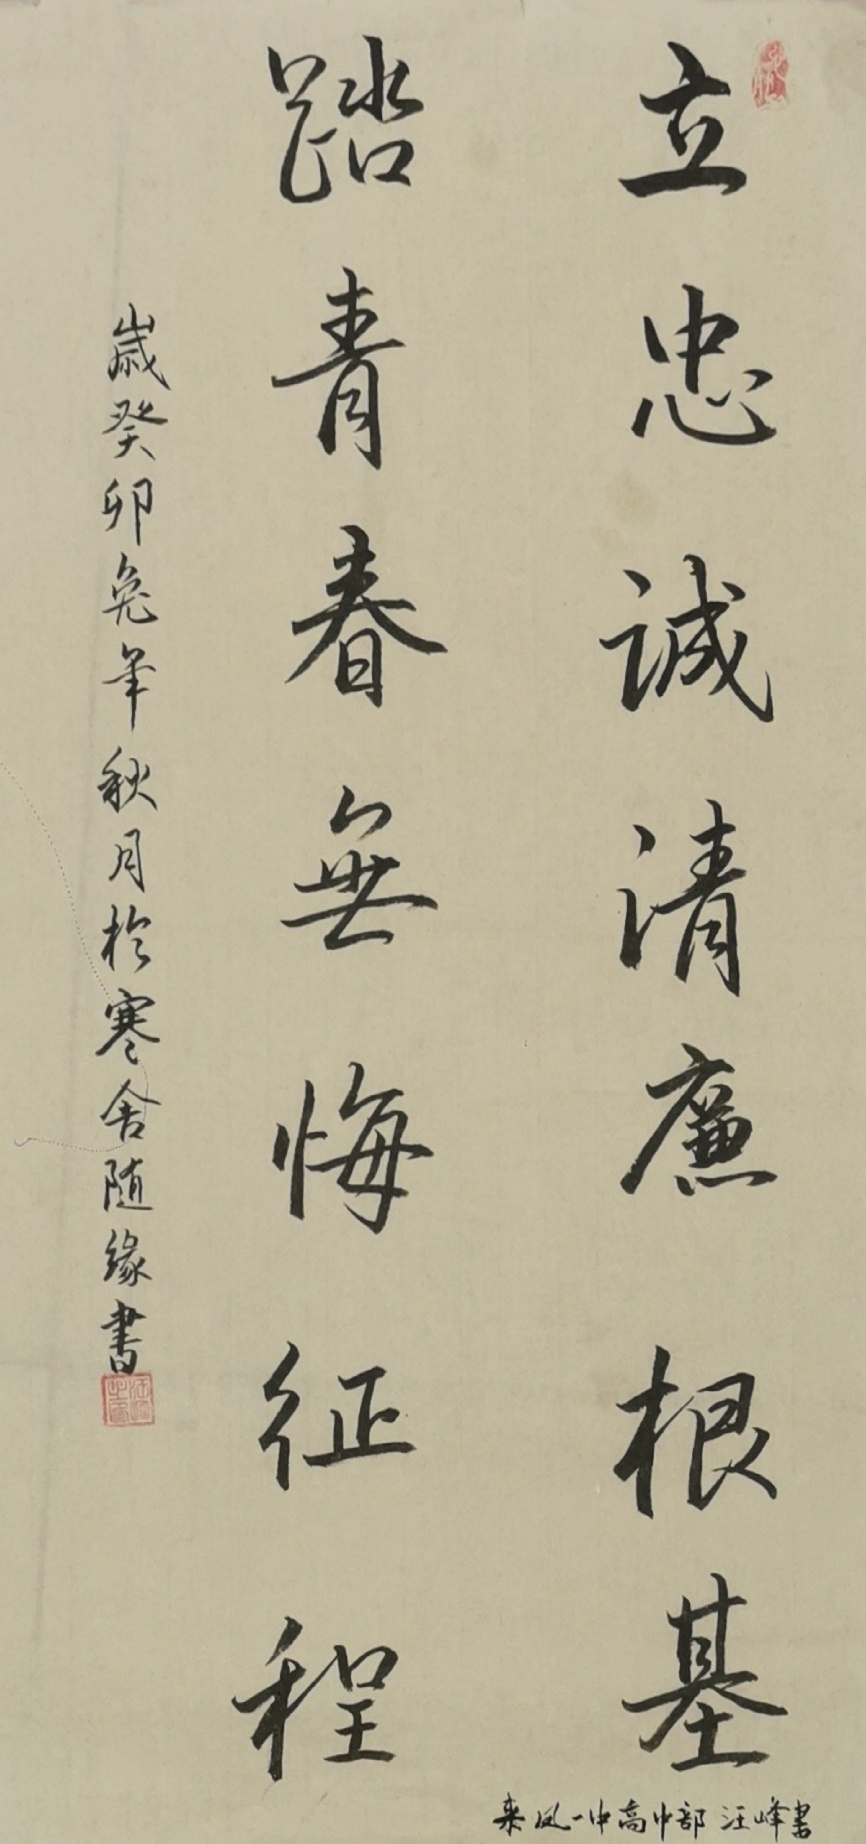 立忠誠清廉根基
踏青春無悔征程
歲癸卯兔年秋月於寒舍随缘書
来凤一中高中部 汪峰書